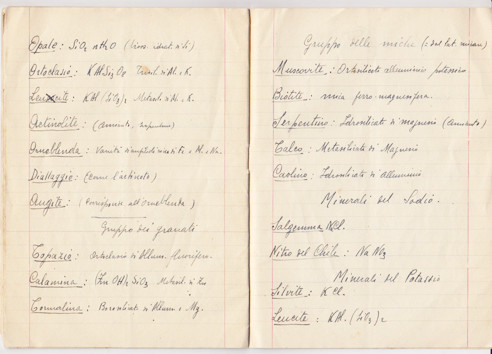 Opale: SiO2 nH2O (bioss. idrat. di Si)
Ortoclasio: KAlSi3O8 Trisil. di Al. e K.
Leucite: KAl (SiO3)2 Metasil. di Al. e K.
Actinolite: (amianto,
Orneblenda: Varietà d'anfibolo di Fe. e M. e Na.
Diallaggio: (come l'actinoto)
Augite: (corrisponde all'orneblenda)
Gruppo dei granati
Topazio: Ortosilicato di Allum. fluorifero.
Calamina: (Zn OH)2 SiO3 Metasil. di Zn
Tormalina: Borosilicato di Allum. e Mg.
Gruppo delle miche (
Muscovite: Ortosilicato alluminio potassico
Biotite: mica ferro-magnesifera.
Serpentino: Idrosilicato di magnesio (amianto)
Talco: Metasilicato di Magnesio
Caolino: Idrosilicato di alluminio
Minerali del Sodio.
Salgemma NCl.
Nitro del Chile: Na NO3
Minerali del Potassio
Silvite: KCl.
Leucite: KAl. (SiO3)2